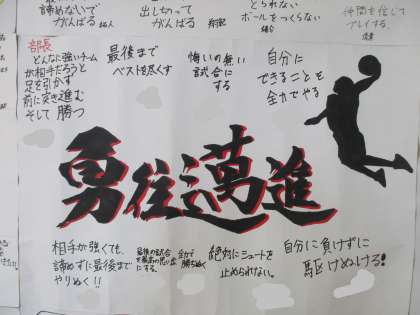 諦めないで
がんばる
出し切って
がんばる
とられない
ボールをつくらない
仲間を信じて
プレイする。
部長
どんなに強いチーム
が相手だろうと
足を引かず
前に突き進む
そして 勝つ
最後まで
ベストを尽くす
悔いの無い
試合に
する
自分に
できることを
全力でやる
勇往邁進
相手が強くても、
諦めずに最後まで
やりぬく!!
最後の試合
を最高の思い出
にする。
全力で
勝ちぬく
絶対にシュートを
止められない。
自分に負けずに
駆けぬける!